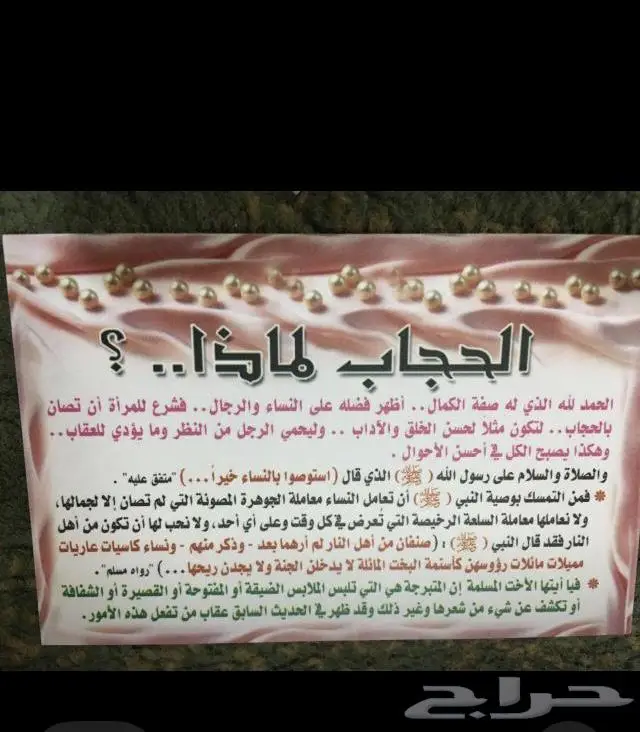 الحجاب لماذا.. ؟
الحمد لله الذي له صفة الكمال.. أظهر فضله على النساء والرجال.. فشرع للمرأة أن تصان
بالحجاب.. لتكون مثلا لحسن الخلق والآداب .. وليحمي الرجل من النظر وما يؤدي للعقاب ..
وهكذا يصبح الكل في أحسن الأحوال .
والصلاة والسلام على رسول الله ( ﷺ ) الذي قال (استوصوا بالنساء خيراً...) "متفق عليه" .
* فمن التمسك بوصية النبي ( ﷺ ) أن تعامل النساء معاملة الجوهرة المصونة التي لم تصان إلا لجمالها،
ولا نعاملها معاملة السلعة الرخيصة التي تُعرض في كل وقت وعلى أي أحد، ولا نحب لها أن تكون من أهل
النار فقد قال النبي ( ﷺ ) : (صنفان من أهل النار لم أرهما بعد - وذكر منهم - ونساء كاسيات عاريات
مميلات مائلات رؤوسهن كأسنمة البخت المائلة لا يدخلن الجنة ولا يجدن ريحها...) "رواه مسلم" .
* فيا أيتها الأخت المسلمة إن المتبرجة هي التي تلبس الملابس الضيقة أو المفتوحة أو القصيرة أو الشفافة
أو تكشف عن شيء من شعرها وغير ذلك وقد ظهر في الحديث السابق عقاب من تفعل هذه الأمور.
حراج